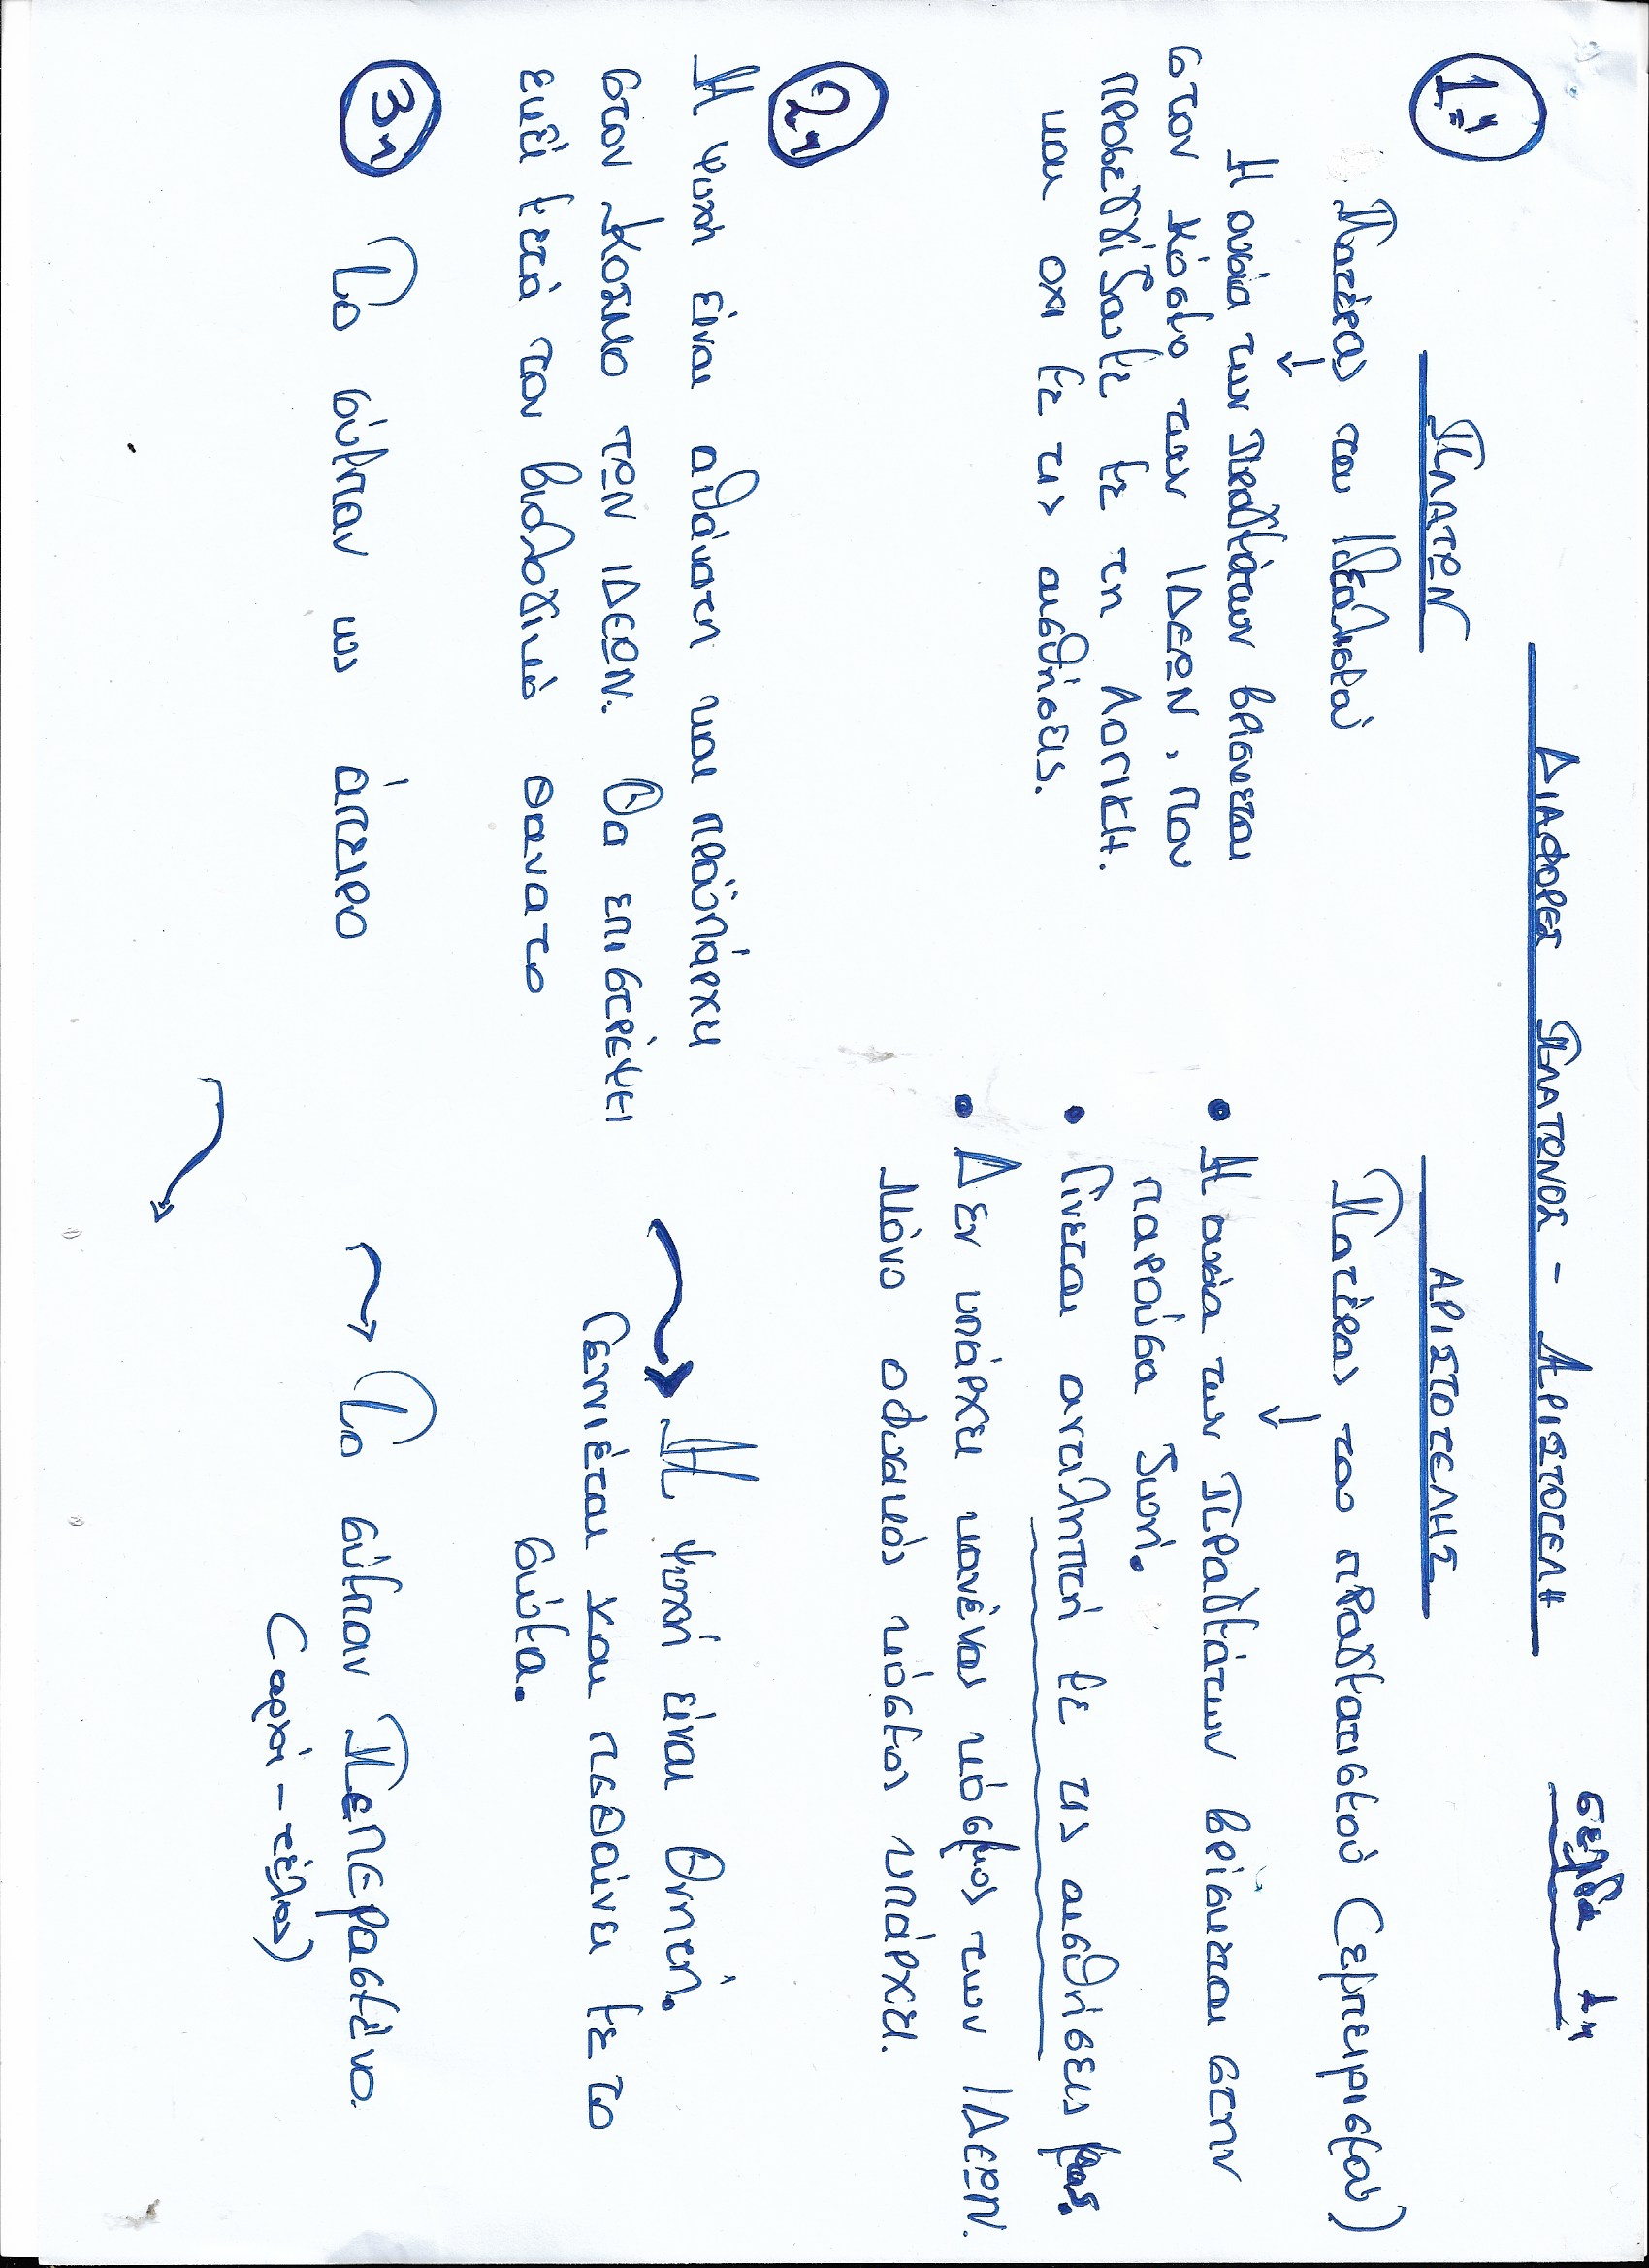 σελίδα 1η
ΔΙΑΦΟΡΕΣ ΠΛΑΤΩΝΟΣ - ΑΡΙΣΤΟΤΕΛΗ
1η
ΠΛΑΤΩΝ
Πατέρας του Ιδεαλισμού
↓
Η ουσία των Πραγμάτων βρίσκεται
στον κόσμο των ΙΔΕΩΝ, που
προσεγγίζουμε με τη ΛΟΓΙΚΗ.
και οχι με τις αισθήσεις.
ΑΡΙΣΤΟΤΕΛΗΣ
Πατέρας του πραγματισμού (εμπειρισμού)
↓
• Η ουσία των Πραγμάτων βρίσκεται στην
παρούσα ζωή.
• Γίνεται αντιληπτή με τις αισθήσεις μας.
• Δεν υπάρχει κανένας κόσμος των ΙΔΕΩΝ.
Μόνο ο φυσικός κόσμος υπάρχει.
2η
Η ψυχή είναι αθάνατη και προϋπάρχει
στον κόσμο ΤΩΝ ΙΔΕΩΝ. Θα επιστρέψει
εκεί μετά τον βιολογικό θανατο
→ Η ψυχή είναι θνητή.
Γεννιέται και πεθαίνει με το
σώμα.
3η
Το σύμπαν ως άπειρο
→ Το σύμπαν Πεπερασμένο.
(αρχή - τέλος)
→